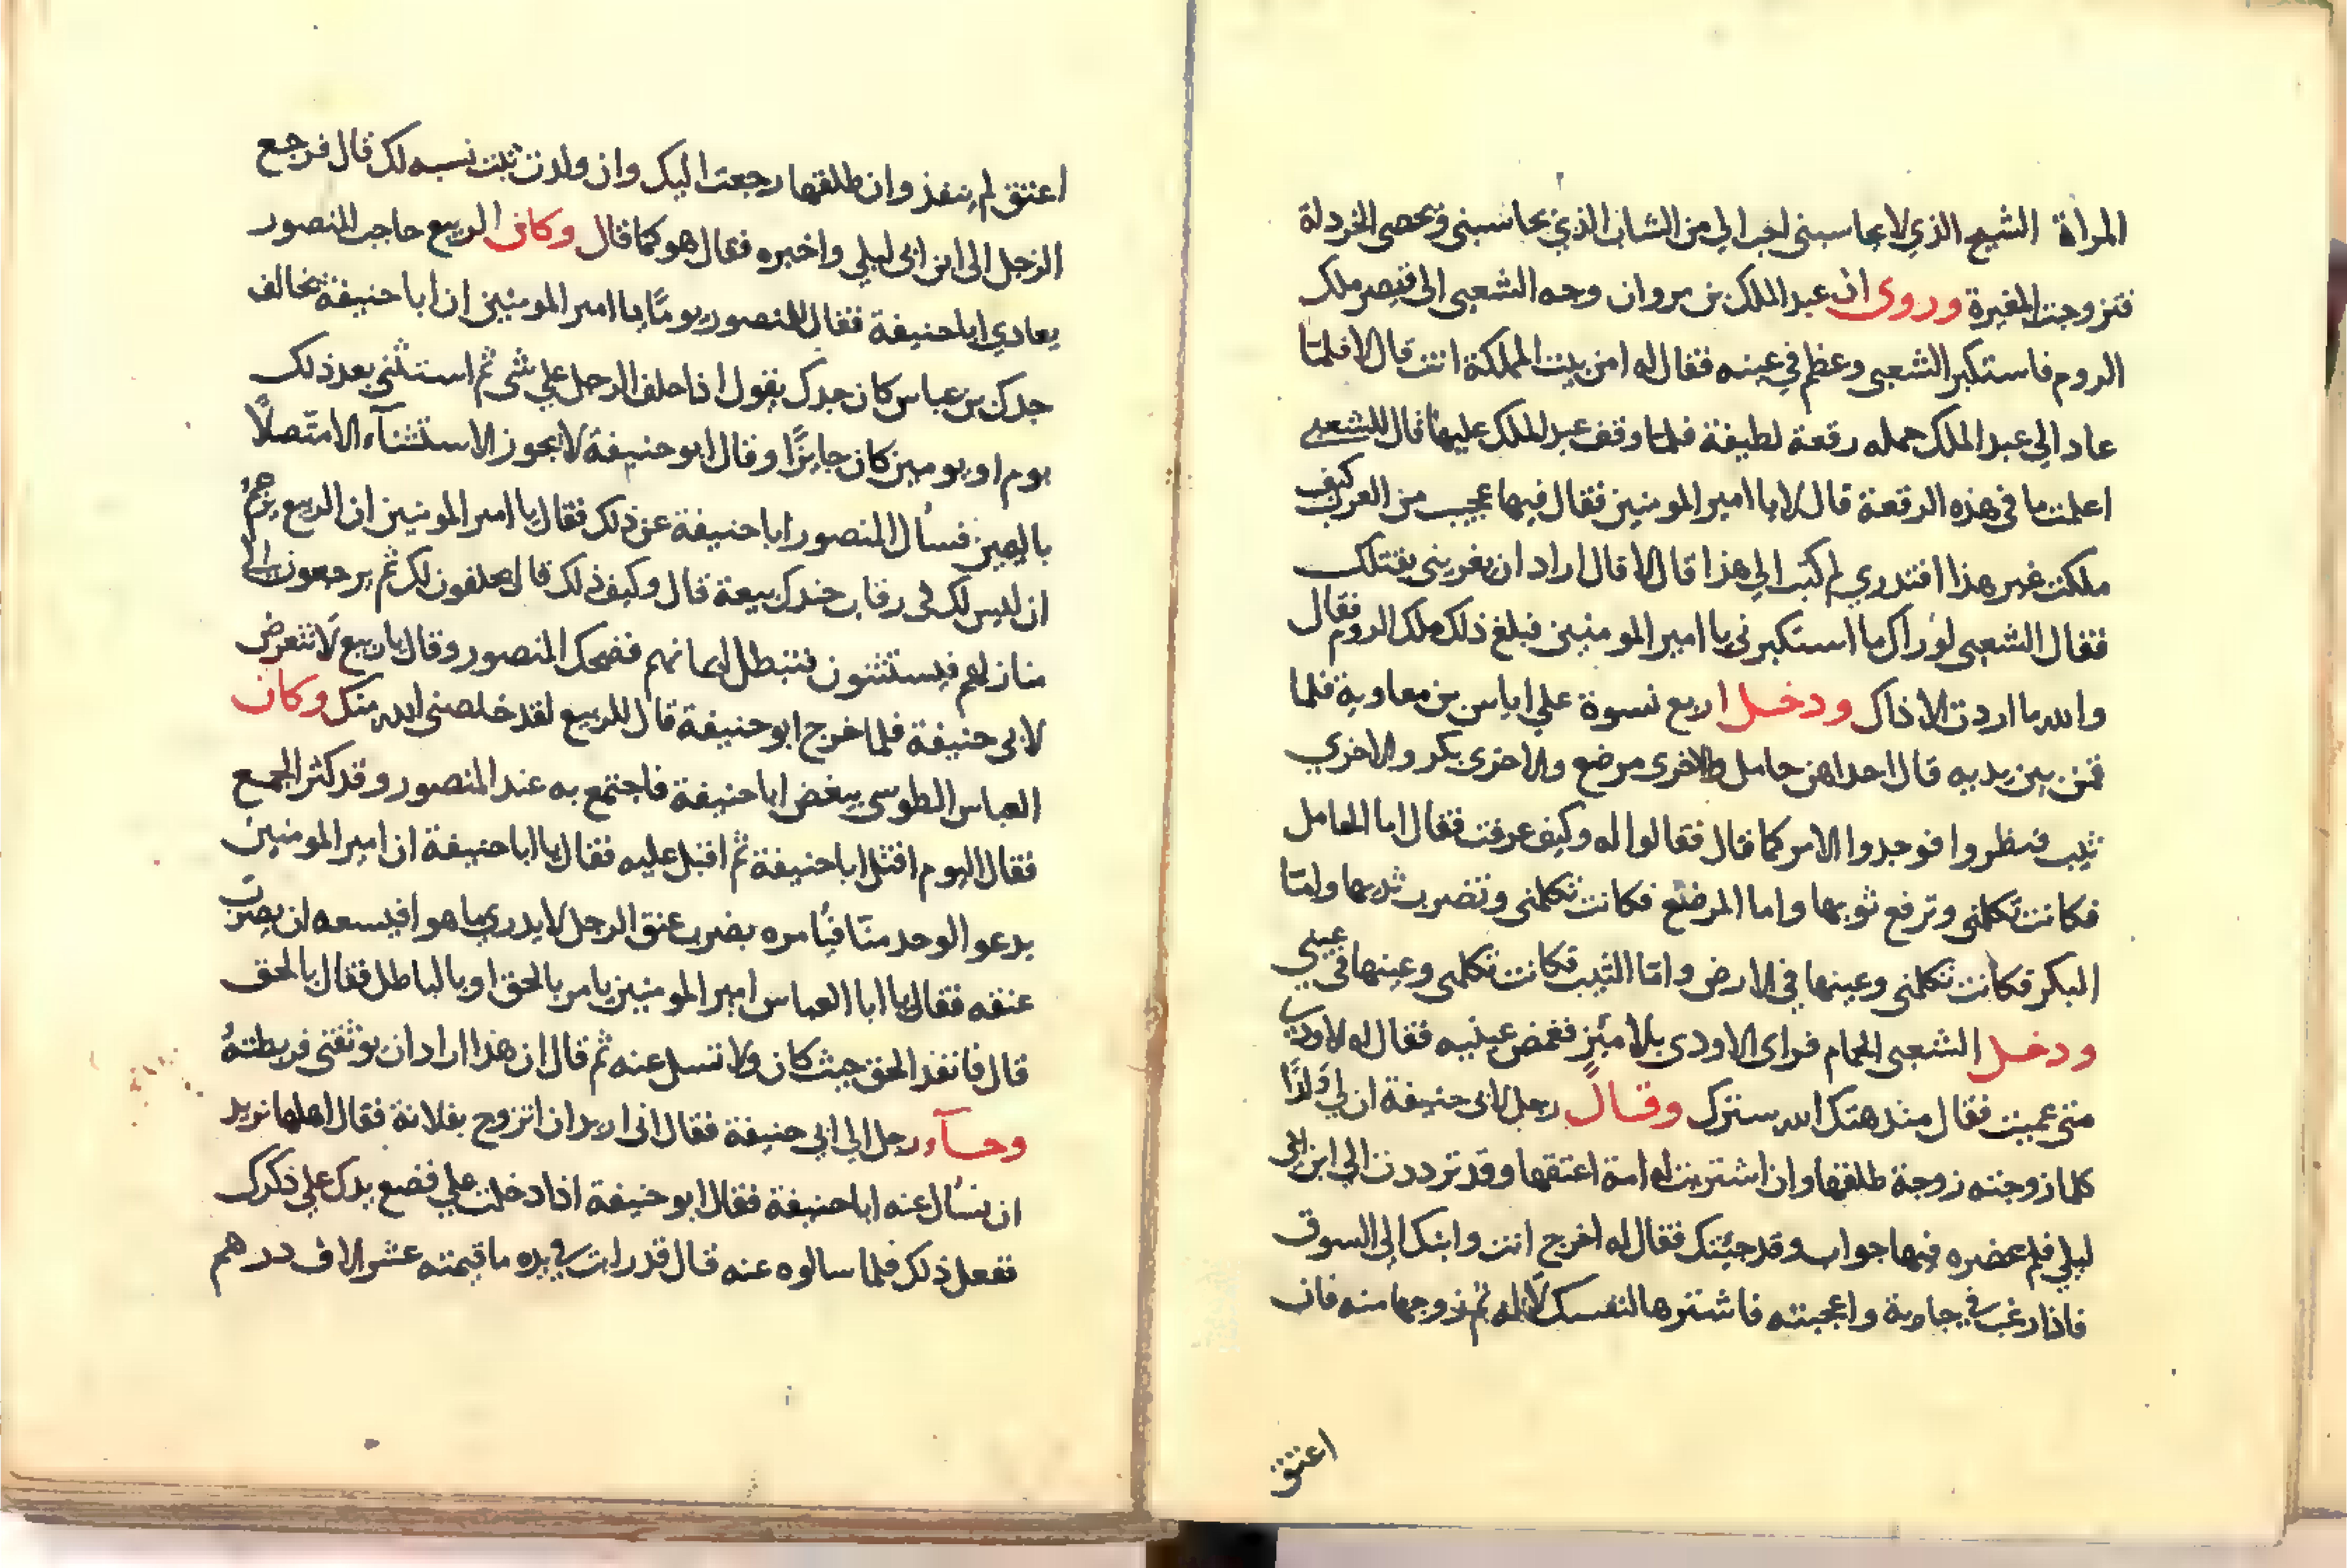 المراة الشيخ الذي لا يحاسبني احب الي من الشاب الذي يحاسبني ويحصى الخردلة
فتزوجت المغيرة وروى ان عبد الملك بن مروان وجه الشعبي الى قيصر ملك
الروم فاستكبر الشعبي وعظم في عينه فقال له امن بيت المملكة انت قال لا فلما
عاد الي عبد الملك حمله رقعة لطيفة فلما وقف عبد الملك عليها قال للشعبي
اعلمت ما في هذه الرقعة قال لا يا امير المومنين فقال فيها عجب من العرب كيف
ملكت غير هذا افتدري لم كتب الي هذا قال لا قال اراد ان يغريني بقتلك
فقال الشعبي لو راك ما استكبرني يا امير المومنين فبلغ ذلك ملك الروم فقال
والله ما اردت الا ذاك ودخل اربع نسوة علي اياس بن معاوية فلما
قمن بين يديه قال احداهن حامل والاخرى مرضع والاخرى بكر والاخري
ثيب فنظروا فوجدوا الامر كما قال فقالوا له وكيف عرفت فقال اما الحامل
فكانت تكلمني وترفع ثوبها واما المرضع فكانت تكلمني وتضرب ثديها واما
البكر فكانت تكلمني وعينها في الارض واما الثيب فكانت تكلمني وعينها في عيني
ودخل الشعبي الحمام فراى الاودى بلا ميزر فغمض عينيه فقال له الاودي
متى عميت فقال منذ هتك الله سترك وقال رجل لابي حنيفة ان لي ولدا
كلما زوجته زوجة طلقها وان اشتريت له امة اعتقها وقد ترددت الي ابن ابي
ليلي فلم يحضره فيها جواب وقد جيتك فقال له اخرج انت وابنك الي السوق
فاذا رغب في جارية واعجبته فاشترها لنفسك لا له ثم زوجها منه فان
اعتق
اعتق لم ينفذ وان طلقها رجعت اليك وان ولدت ثبت نسبه لك قال فرجع
الرجل الى ابن ابي ليلي واخبره فقال هو كما قال وكان الربيع حاجب المنصور
يعادي ابا حنيفة فقال للمنصور يوما يا امير المومنين ان ابا حنيفة يخالف
جدك بن عباس كان جدك يقول اذا حلف الرجل علي شى ثم استثنى بعد ذلك
بيوم او يومين كان جايزا وقال ابو حنيفة لا يجوز الاستثنآء الا متصلا
باليمين فسال المنصور ابا حنيفة عن ذلك فقال يا امير المومنين ان الربيع يزعم
ان ليس لك في رقاب جندك بيعة قال وكيف ذلك قال يحلفون لك ثم يرجعون الى
منازلهم فيستثنون فتبطل ايمانهم فضحك المنصور وقال يا ربيع لا تتعرض
لابي حنيفة فلما خرج ابو حنيفة قال للربيع لقد خلصنى الله منك وكان
العباس الطوسي يبغض ابا حنيفة فاجتمع به عند المنصور وقد كثر الجمع
فقال اليوم اقتل ابا حنيفة ثم اقبل عليه فقال يا ابا حنيفة ان امير المومنين
يدعو الوحد منا فيامره بضرب عنق الرجل لا يدري ما هو افيسعه ان يضرب
عنقه فقال يا ابا العباس امير المومنين يامر بالحق او بالباطل فقال بالحق
قال فانفذ الحق حيث كان ولا تسل عنه ثم قال ان هذا اراد ان يوثقني فربطته
وجآء رجل الي ابي حنيفة فقال اني اريد ان اتزوج بفلانة فقال اهلها نريد
ان نسال عنه ابا حنيفة فقال ابو حنيفة اذا دخلت علي فضع يدك علي ذكرك
ففعل ذلك فلما سالوه عنه قال قد رايت في يده ما قيمته عشر الاف درهم